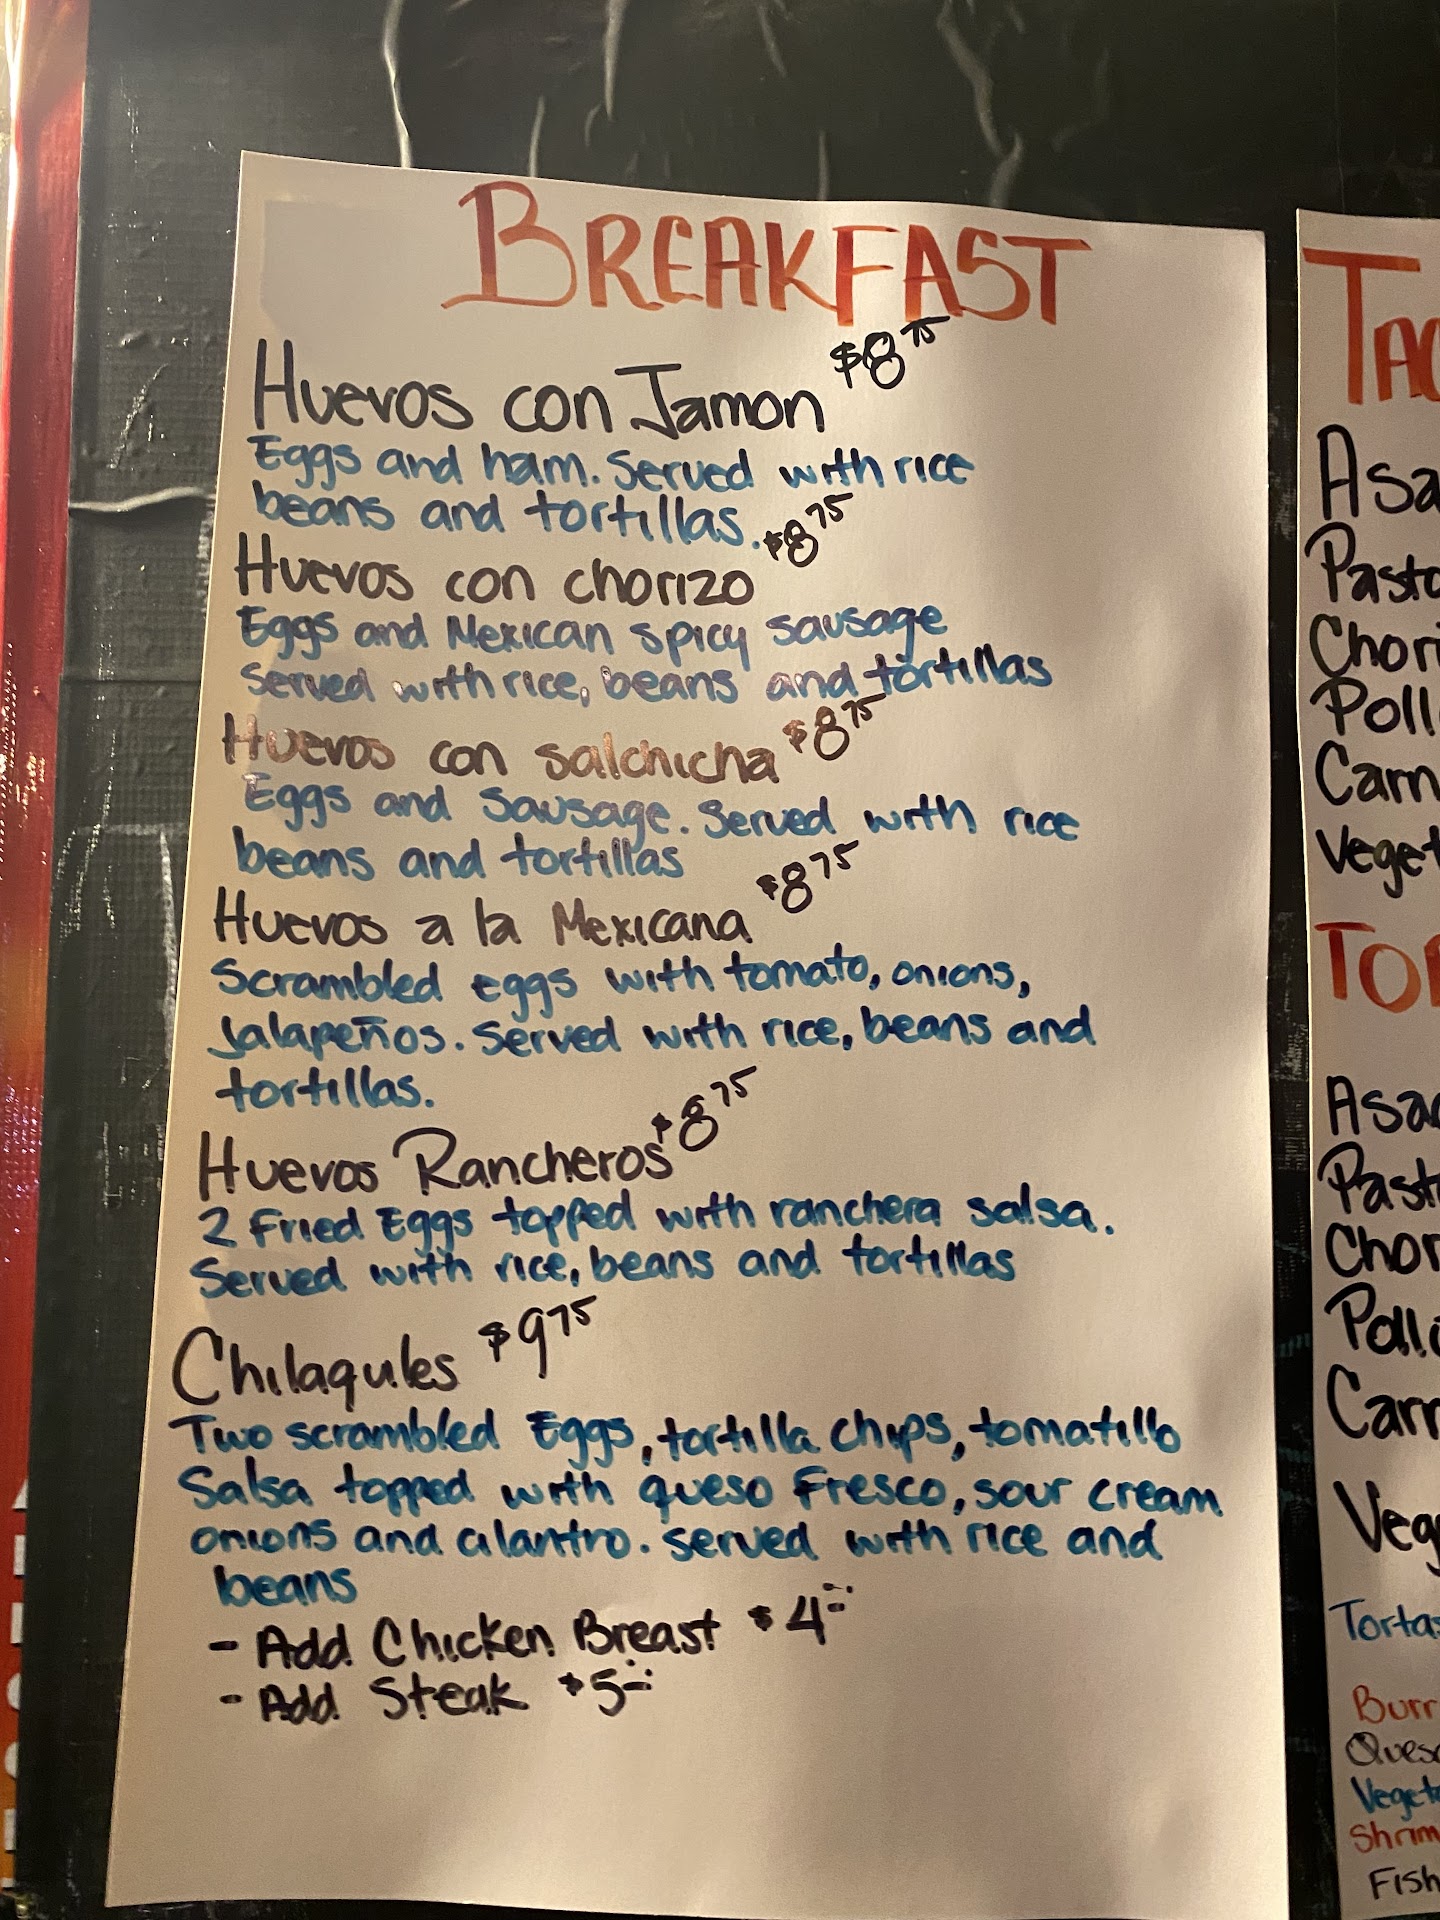 BREAKFAST
Huevos con Jamon $8.75
Eggs and ham. Served with rice
beans and tortillas.
Huevos con chorizo $8.75
Eggs and Mexican spicy sausage
Served with rice, beans and tortillas
Huevos con salchicha $8.75
Eggs and Sausage. Served with rice
beans and tortillas
Huevos a la Mexicana $8.75
Scrambled eggs with tomato, onions,
Jalapeños. Served with rice, beans and
tortillas.
Huevos Rancheros $8.75
2 Fried Eggs topped with ranchera salsa.
Served with rice, beans and tortillas
Chilaqules $9.75
Two scrambled Eggs, tortilla chips, tomatillo
Salsa topped with queso Fresco, sour cream
onions and cilantro. served with rice and
beans
- Add Chicken Breast $4
- Add Steak $5
Tac
Asa
Pasto
Chori
Poll
Carn
Veget
Tor
Asa
Past
Chor
Poll
Carn
Veg
Tortas
Burr
Ques
Vegeta
Shrim
Fish